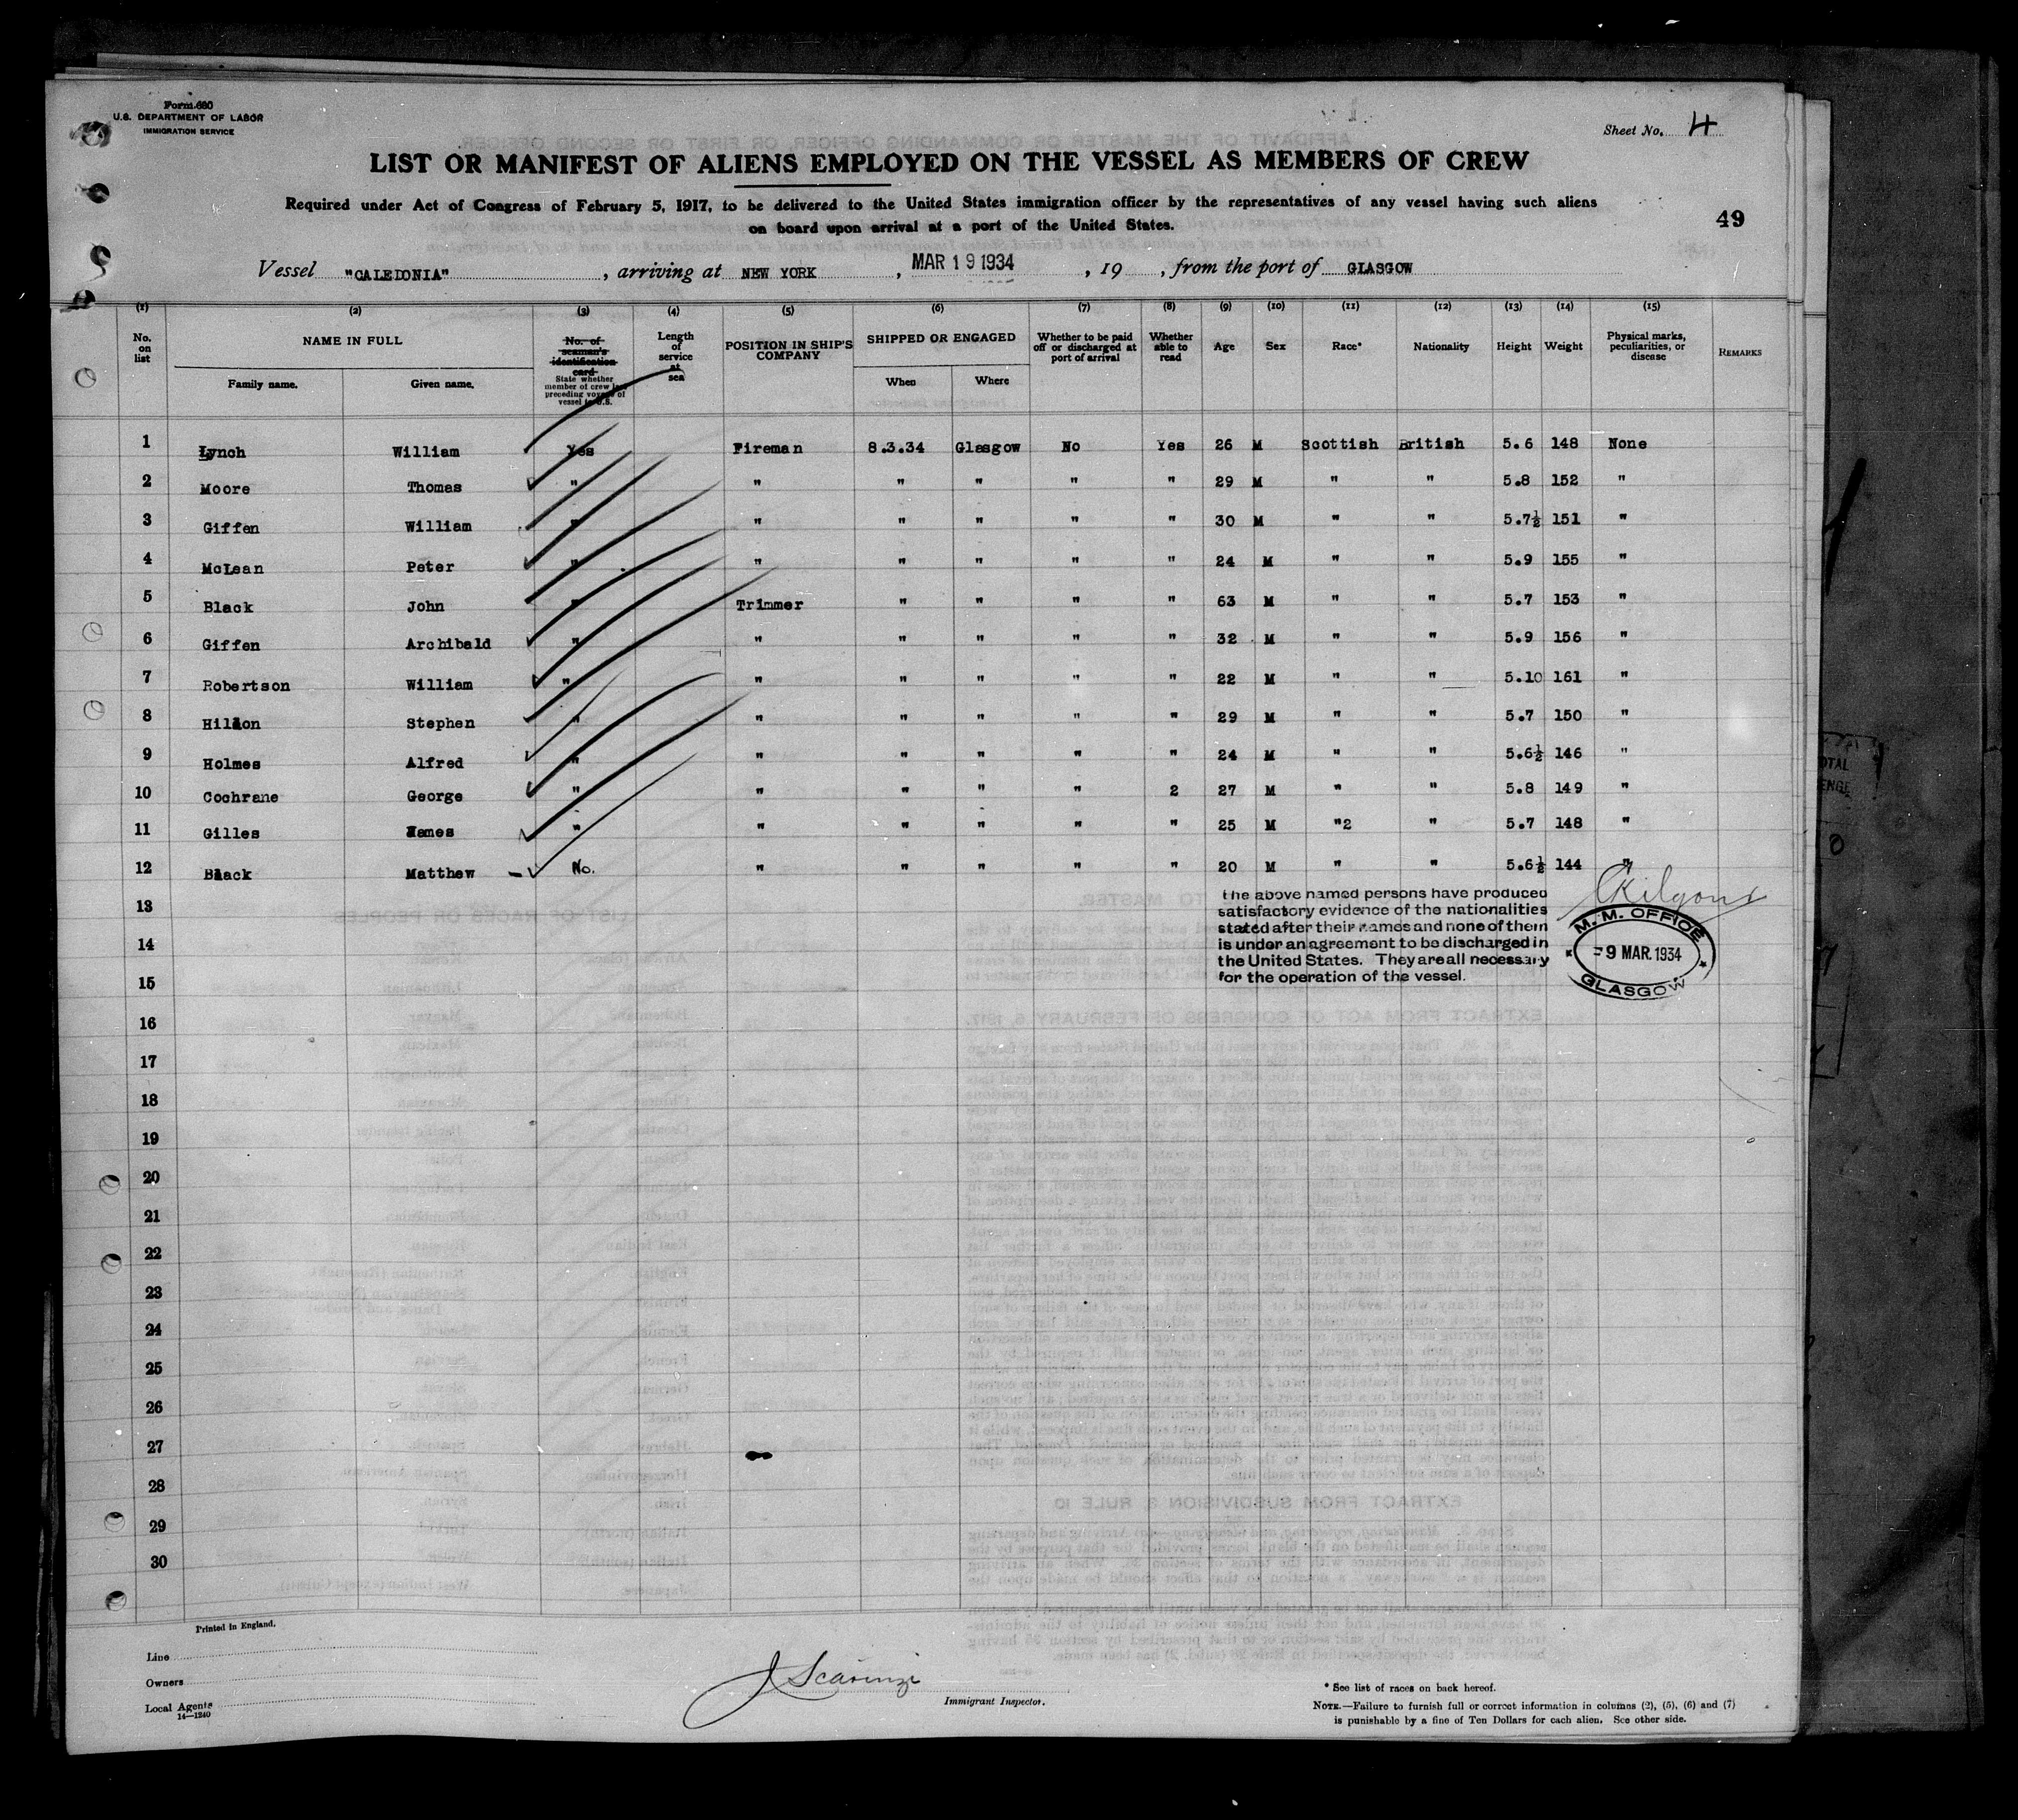 Form 680
U.S. DEPARTMENT OF LABOR
IMMIGRATION SERVICE
Sheet No. 4
LIST OR MANIFEST OF ALIENS EMPLOYED ON THE VESSEL AS MEMBERS OF CREW
Required under Act of Congress of February 5, 1917, to be delivered to the United States immigration officer by the representatives of any vessel having such aliens
on board upon arrival at a port of the United States.
49
Vessel "CALEDONIA", arriving at NEW YORK, MAR 19 1934, 19 , from the port of GLASGOW
(1) (2) (3) (4) (5) (6) (7) (8) (9) (10) (11) (12) (13) (14) (15)
No. on list
NAME IN FULL
Family name. Given name.
No. of seaman's identification card
State whether member of crew preceding voyage of vessel to U.S.
Length of service at sea
POSITION IN SHIP'S COMPANY
SHIPPED OR ENGAGED
When Where
Whether to be paid off or discharged at port of arrival
Whether able to read
Age Sex Race* Nationality Height Weight
Physical marks, peculiarities, or disease
REMARKS
1 Lynch William Yes Fireman 8.3.34 Glasgow No Yes 26 M Scottish British 5.6 148 None
2 Moore Thomas " " " " " " 29 M " " 5.8 152 "
3 Giffen William " " " " " " 30 M " " 5.7½ 151 "
4 McLean Peter " " " " " " 24 M " " 5.9 155 "
5 Black John " Trimmer " " " " 63 M " " 5.7 153 "
6 Giffen Archibald " " " " " " 32 M " " 5.9 156 "
7 Robertson William " " " " " " 22 M " " 5.10 161 "
8 Stephen " " " " " " 29 M " " 5.7 150 "
9 Holmes Alfred " " " " " " 24 M " " 5.6½ 146 "
10 Cochrane George " " " " " 2 27 M " " 5.8 149 "
11 Gilles " " " " " " 25 M "2 " 5.7 148 "
12 Black Matthew No. " " " " " 20 M " " 5.6½ 144 "
13
14
15
16
17
18
19
20
21
22
23
24
25
26
27
28
29
30
The above named persons have produced
satisfactory evidence of the nationalities
stated after their names and none of them
is under an agreement to be discharged in
the United States. They are all necessary
for the operation of the vessel.
M. M. OFFICE
9 MAR. 1934
GLASGOW
Printed in England.
Line
Owners
Local Agents
14—1240
J Scarinzi
Immigrant Inspector.
* See list of races on back hereof.
NOTE.—Failure to furnish full or correct information in columns (2), (5), (6) and (7)
is punishable by a fine of Ten Dollars for each alien. See other side.